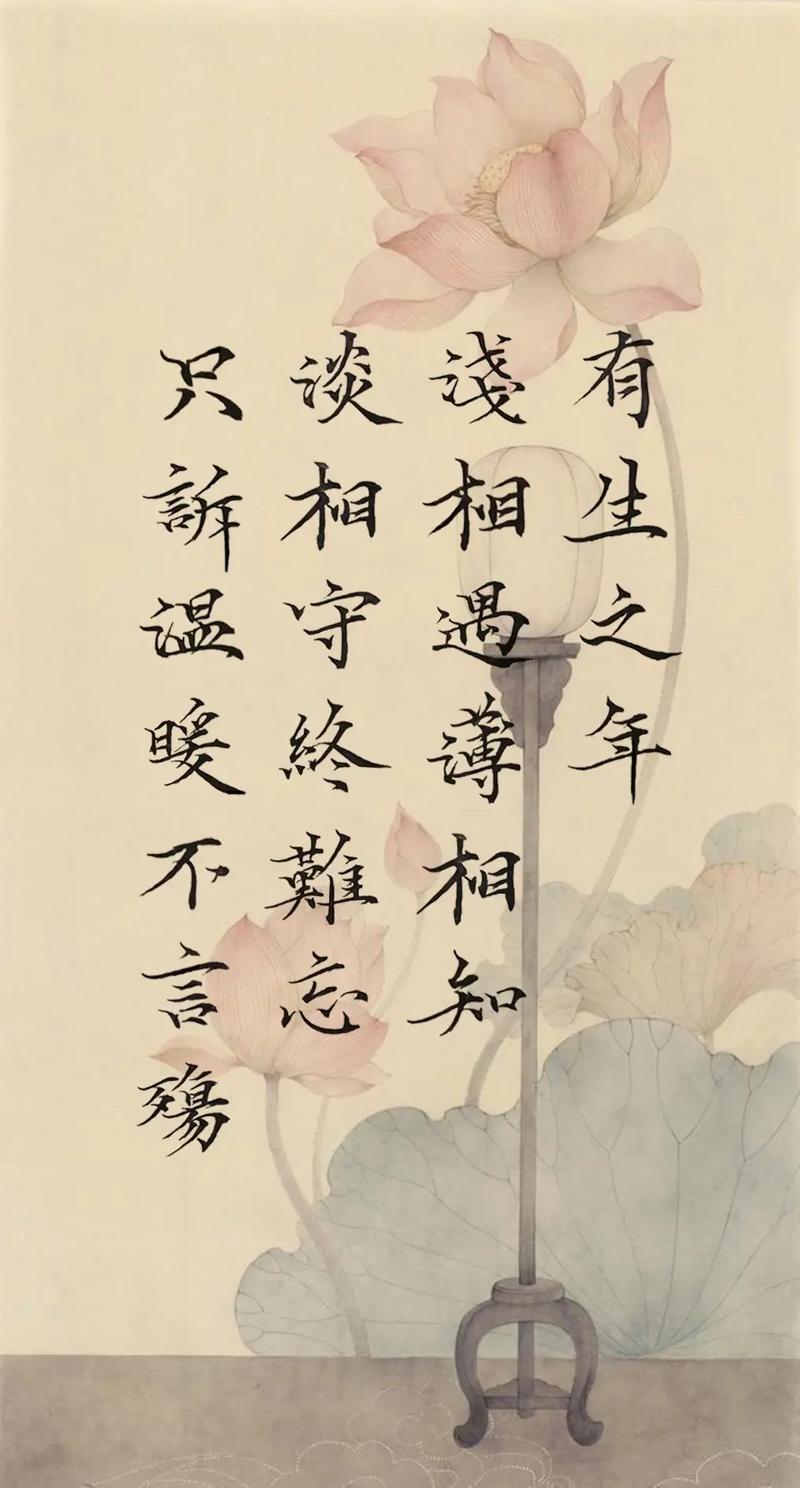 有生之年
淺相遇薄相知
淡相守終難忘
只訴溫暖不言殤